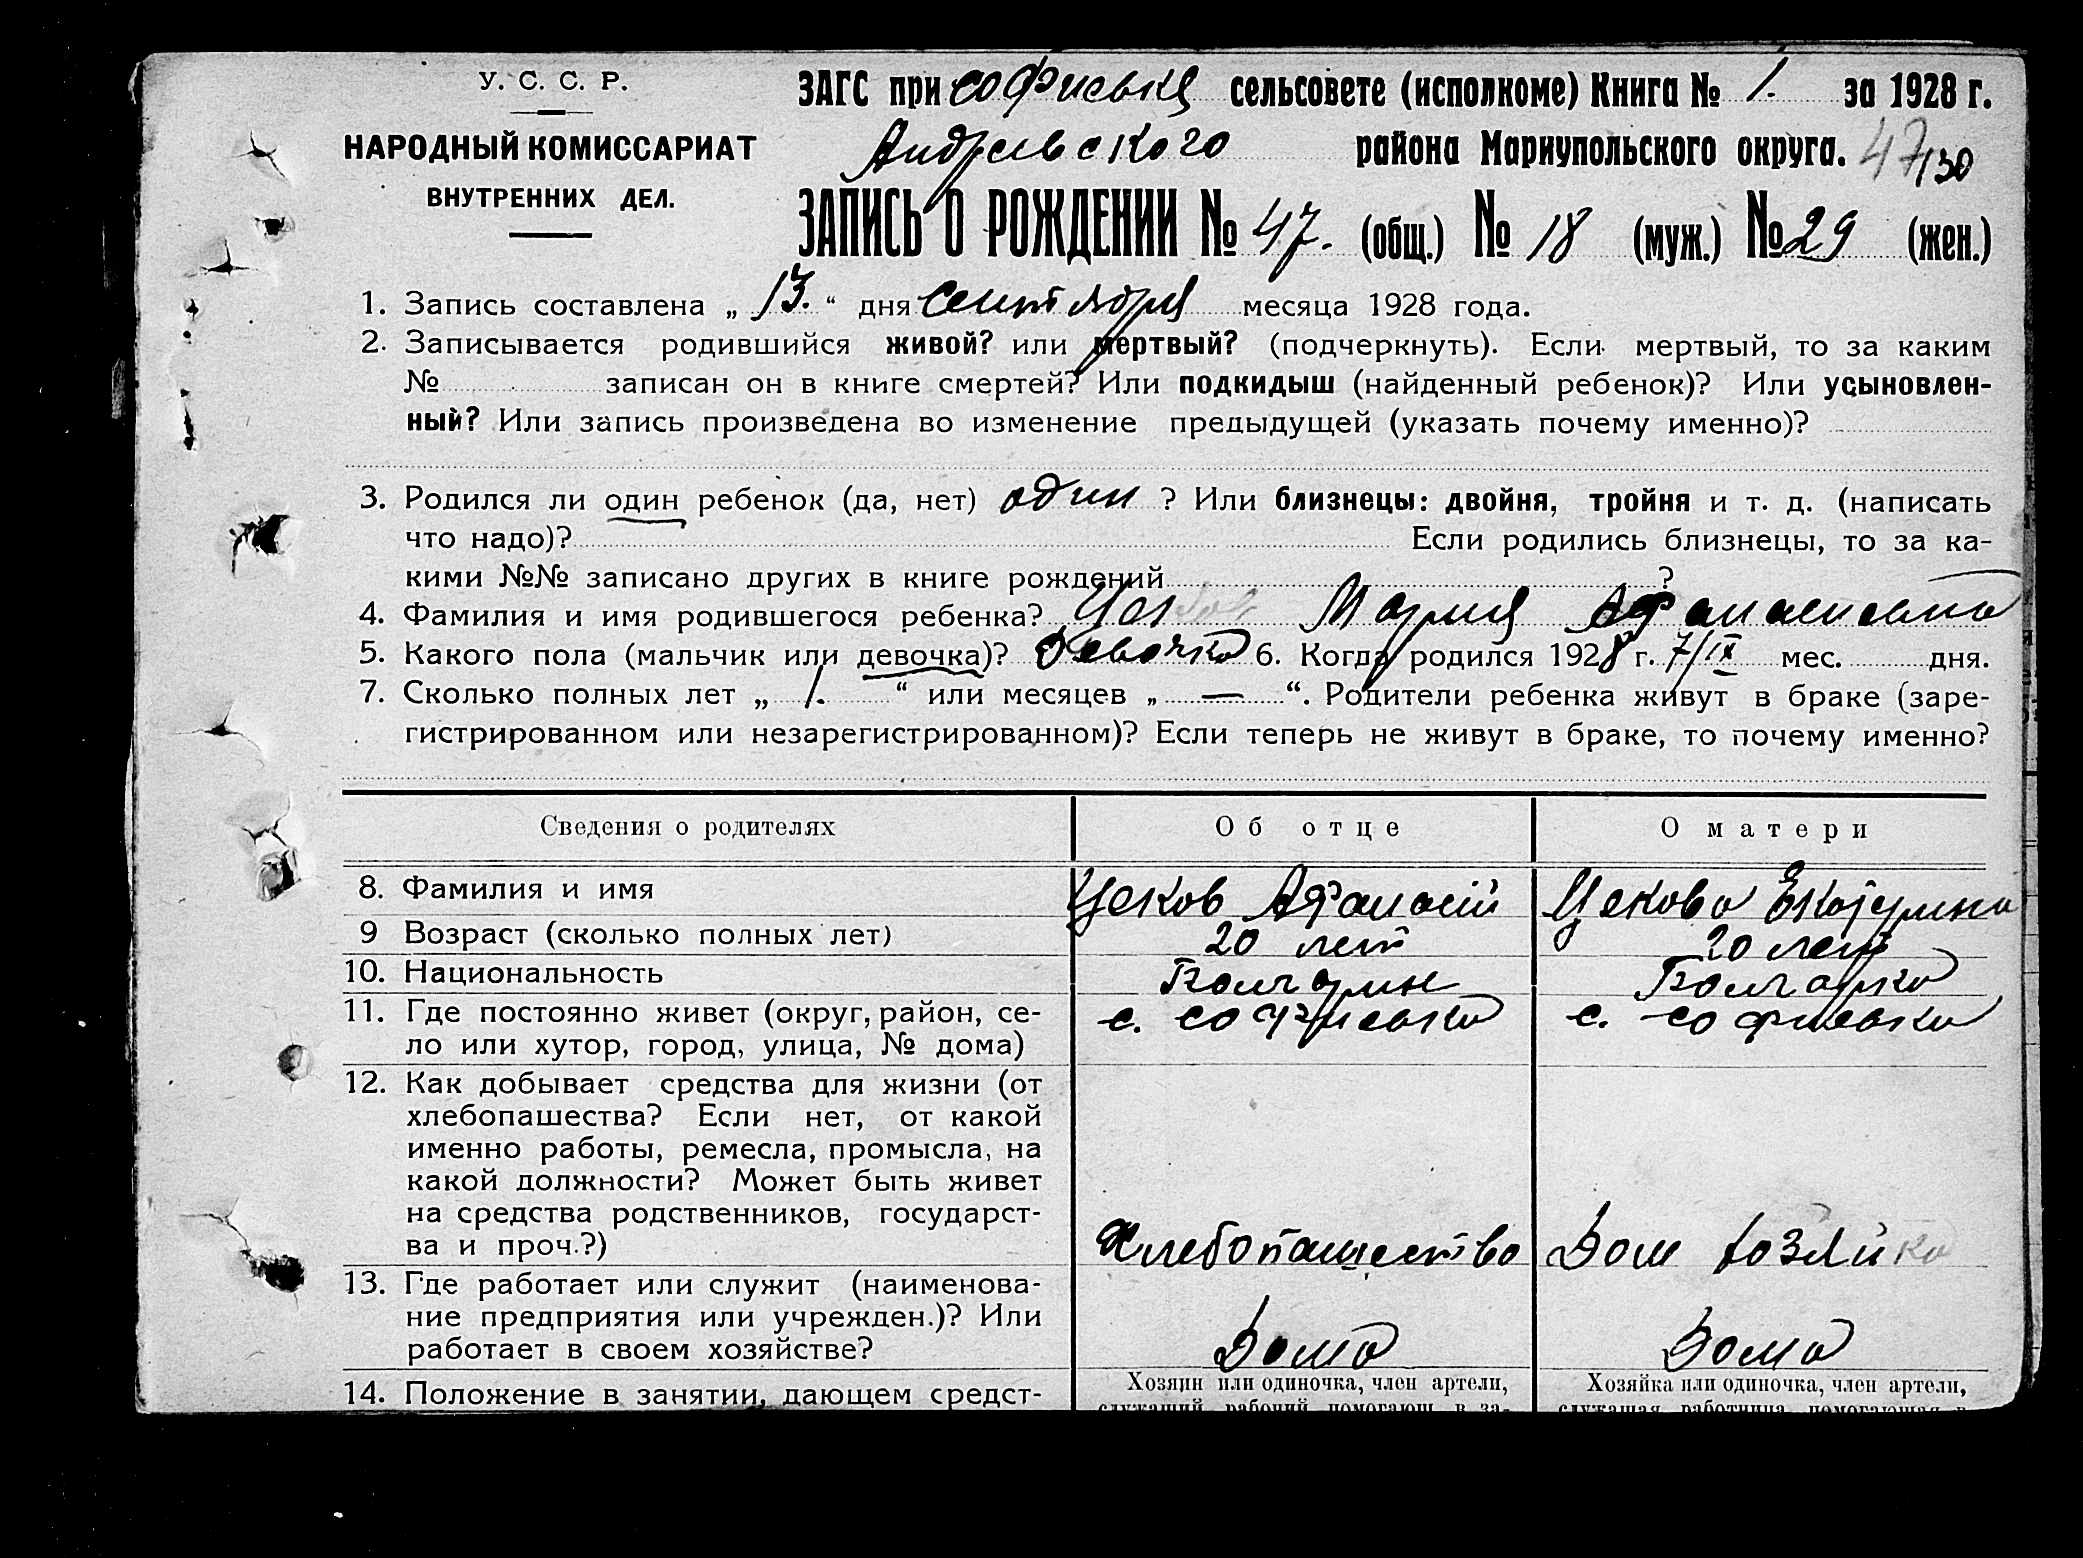 У. С. С. Р.
НАРОДНЫЙ КОМИССАРИАТ
ВНУТРЕННИХ ДЕЛ.
ЗАГС при Софиевка сельсовете (исполкоме) Книга № 1. за 1928 г.
Андреевского района Мариупольского округа. 47/130
ЗАПИСЬ О РОЖДЕНИИ № 47. (общ.) № 18 (муж.) № 29 (жен.)
1. Запись составлена „ 13. “ дня Сентября месяца 1928 года.
2. Записывается родившийся живой? или мертвый? (подчеркнуть). Если мертвый, то за каким
№ записан он в книге смертей? Или подкидыш (найденный ребенок)? Или усыновлен-
ный? Или запись произведена во изменение предыдущей (указать почему именно)?
3. Родился ли один ребенок (да, нет) один ? Или близнецы: двойня, тройня и т. д. (написать
что надо)? Если родились близнецы, то за ка-
кими №№ записано других в книге рождений ?
4. Фамилия и имя родившегося ребенка? Мария
5. Какого пола (мальчик или девочка)? Девочка 6. Когда родился 1928 г. 7/IX мес. дня.
7. Сколько полных лет „ 1. “ или месяцев „ — “. Родители ребенка живут в браке (заре-
гистрированном или незарегистрированном)? Если теперь не живут в браке, то почему именно?
Сведения о родителях Об отце О матери
8. Фамилия и имя Цеков Афанасий Цекова Екатерина
9 Возраст (сколько полных лет) 20 лет 20 лет
10. Национальность Болгарин Болгарка
11. Где постоянно живет (округ, район, се- с. Софиевка с. Софиевка
ло или хутор, город, улица, № дома)
12. Как добывает средства для жизни (от
хлебопашества? Если нет, от какой
именно работы, ремесла, промысла, на
какой должности? Может быть живет
на средства родственников, государст-
ва и проч.?) Хлебопашество Дом хозяйка
13. Где работает или служит (наименова-
ние предприятия или учрежден.)? Или
работает в своем хозяйстве? Дома Дома
14. Положение в занятии, дающем средст- Хозяин или одиночка, член артели, Хозяйка или одиночка, член артели,